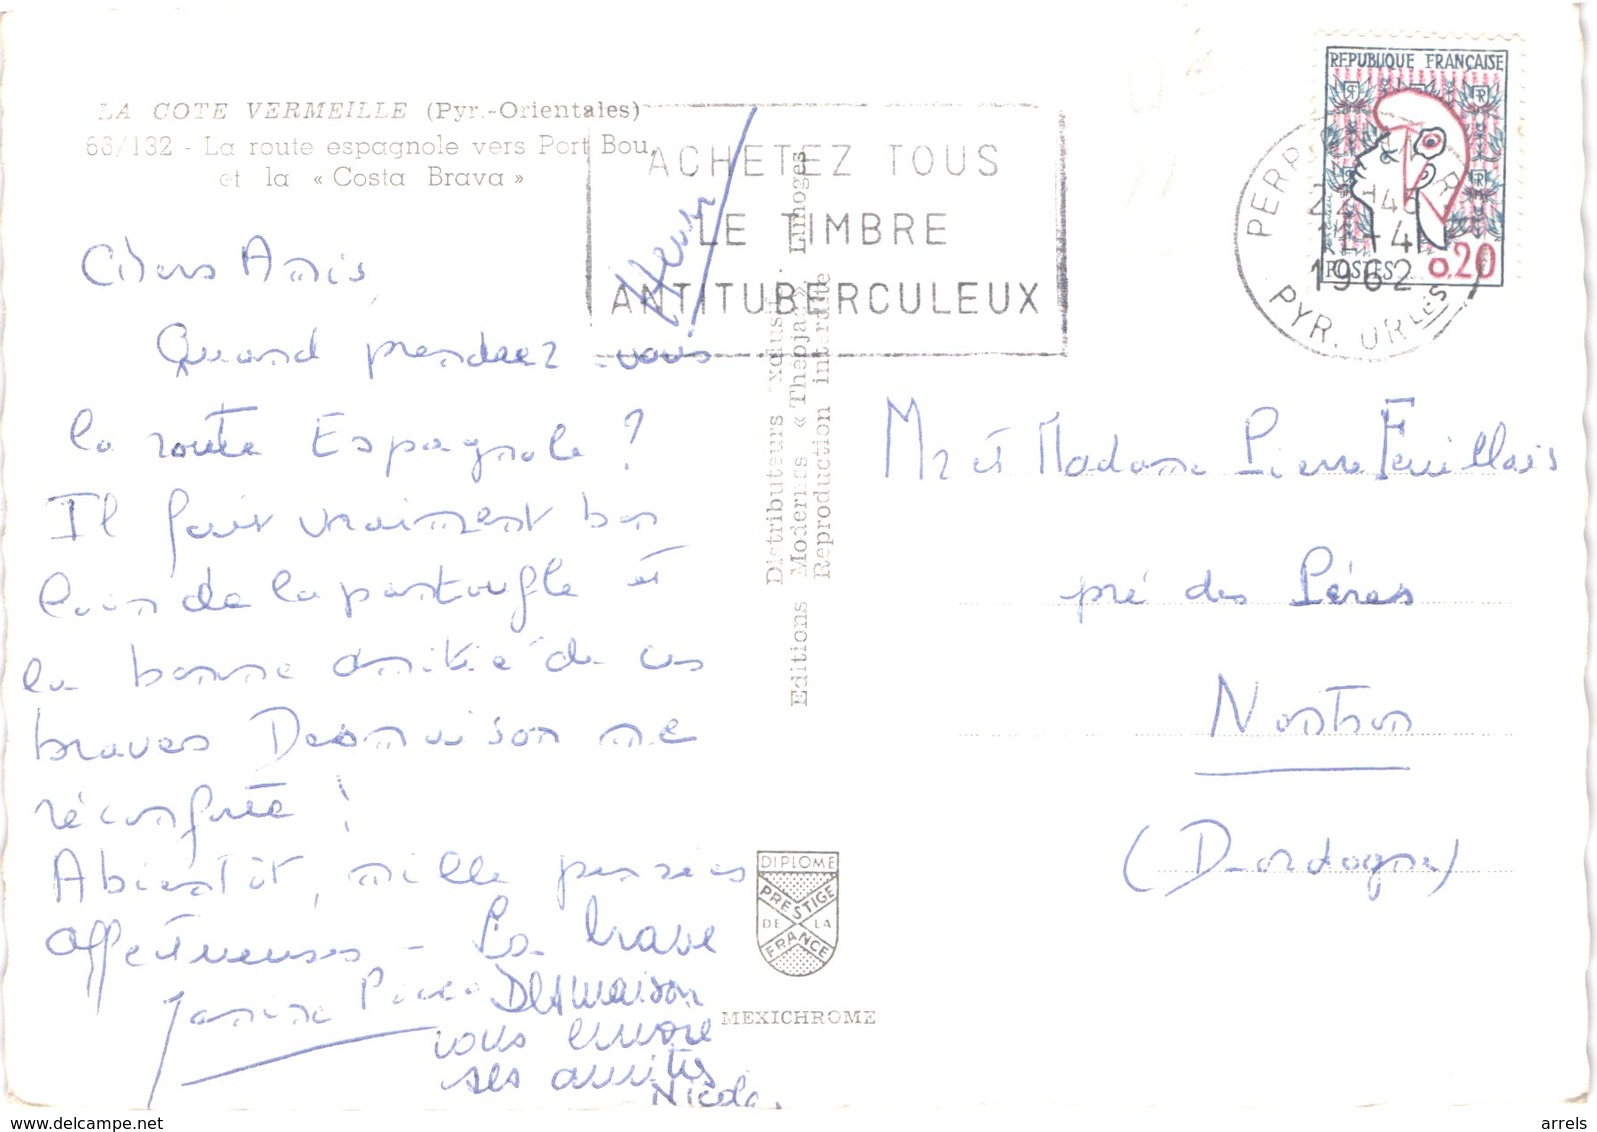 LA COTE VERMEILLE (Pyr.-Orientales)
66/132 - La route espagnole vers Port Bou,
et la « Costa Brava »
Chers Amis,
Quand prendrez-vous
la route Espagnole ?
Il fait vraiment bon
loin de la pantoufle et
la bonne amitié de ces
braves Desmaison me
réconforte !
A bientôt, mille pensées
affectueuses - La brave
Janine Desmaison
vous envoie
ses amitiés
Nicole.
Editions Distributeurs exclusifs.
Modernes « Théojac » Limoges
Reproduction interdite
ACHETEZ TOUS
LE TIMBRE
ANTITUBERCULEUX
REPUBLIQUE FRANÇAISE
POSTES 0.20
22H45
4
1962
PYR. ORLES
Mr et Madame Pierre Feuillais
pré des Pères
Nontron
(Dordogne)
DIPLOME
PRESTIGE
DE LA
FRANCE
MEXICHROME
www.delcampe.net
arrels